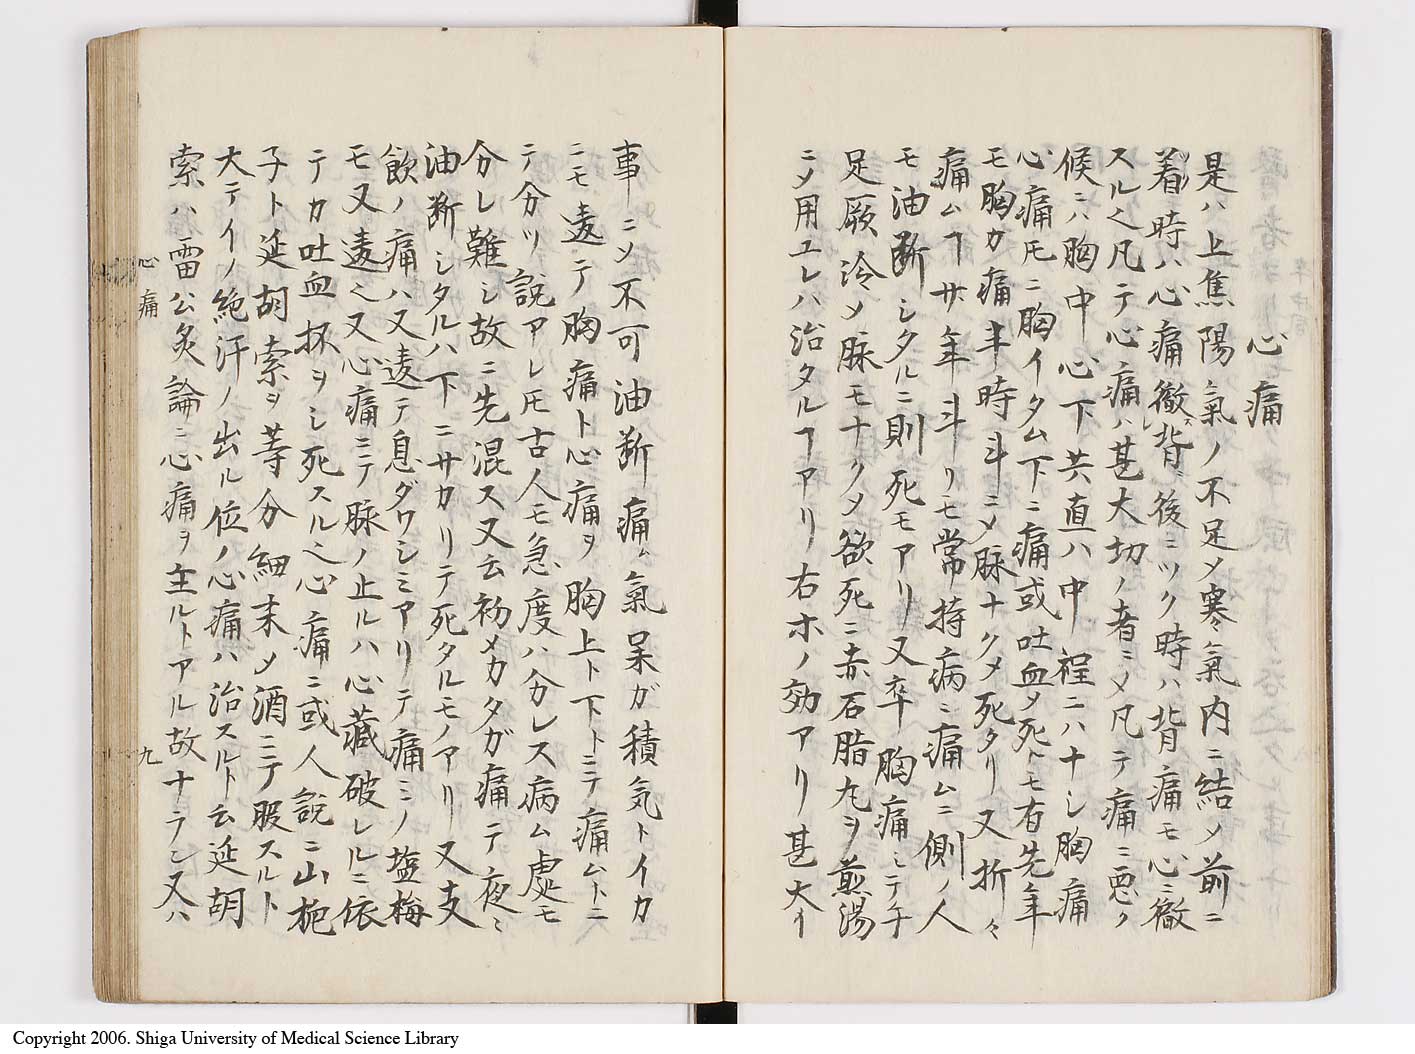 心痛
是ハ上焦陽氣ノ不足メ寒氣内ニ結メ前ニ
着時ハ心痛徹背ニ後ニツク時ハ背痛モ心ニ徹
スル也凡テ心痛ハ甚大切ノ者ニメ凡テ痛ニ悪ク
候ニハ胸中心下共直ハ中程ニハナシ胸痛
心痛圧ニ胸イタム下ニ痛或吐血メ死ヒモ有先年
モ胸カ痛半時斗ニメ脉ナクメ死タリ又折々
痛ムヿ廿年斗リモ常持病ニ痛ムニ側ノ人
モ油断シタルニ則死モアリ又卒胸痛シテ手
足厥冷メ脉モナクメ欲死ニ赤石脂丸ヲ煎湯
ニメ用ユレハ治タルヿアリ右ホノ効アリ甚大イ
事ニメ不可油断痛ム氣呆ガ積気トイカ
ニモ違テ胸痛ト心痛ヲ胸上ト下トニテ痛ムトニ
テ分ツ説アレ圧古人モ急度ハ分レス病ム處モ
分レ難シ故ニ先混ス又云初メカタガ痛テ夜ミ
油断シタルハ下ニサカリテ死タルモノアリ又支
飲ノ痛ハ又違テ息ダワシミアリテ痛ミノ塩梅
モ又違也又心痛ニテ脉ノ止ルハ心藏破レルニ依
テカ吐血抔ヲシ死スル也心痛ニ或人説ニ山梔
子ト延胡索ヲ等分細末メ酒ニテ服スルト
大テイノ絶汗ノ出ル位ノ心痛ハ治スルト云延胡
索ハ雷公炙論ニ心痛ヲ主ルトアル故ナラン又ハ
心痛
九
Copyright 2006. Shiga University of Medical Science Library